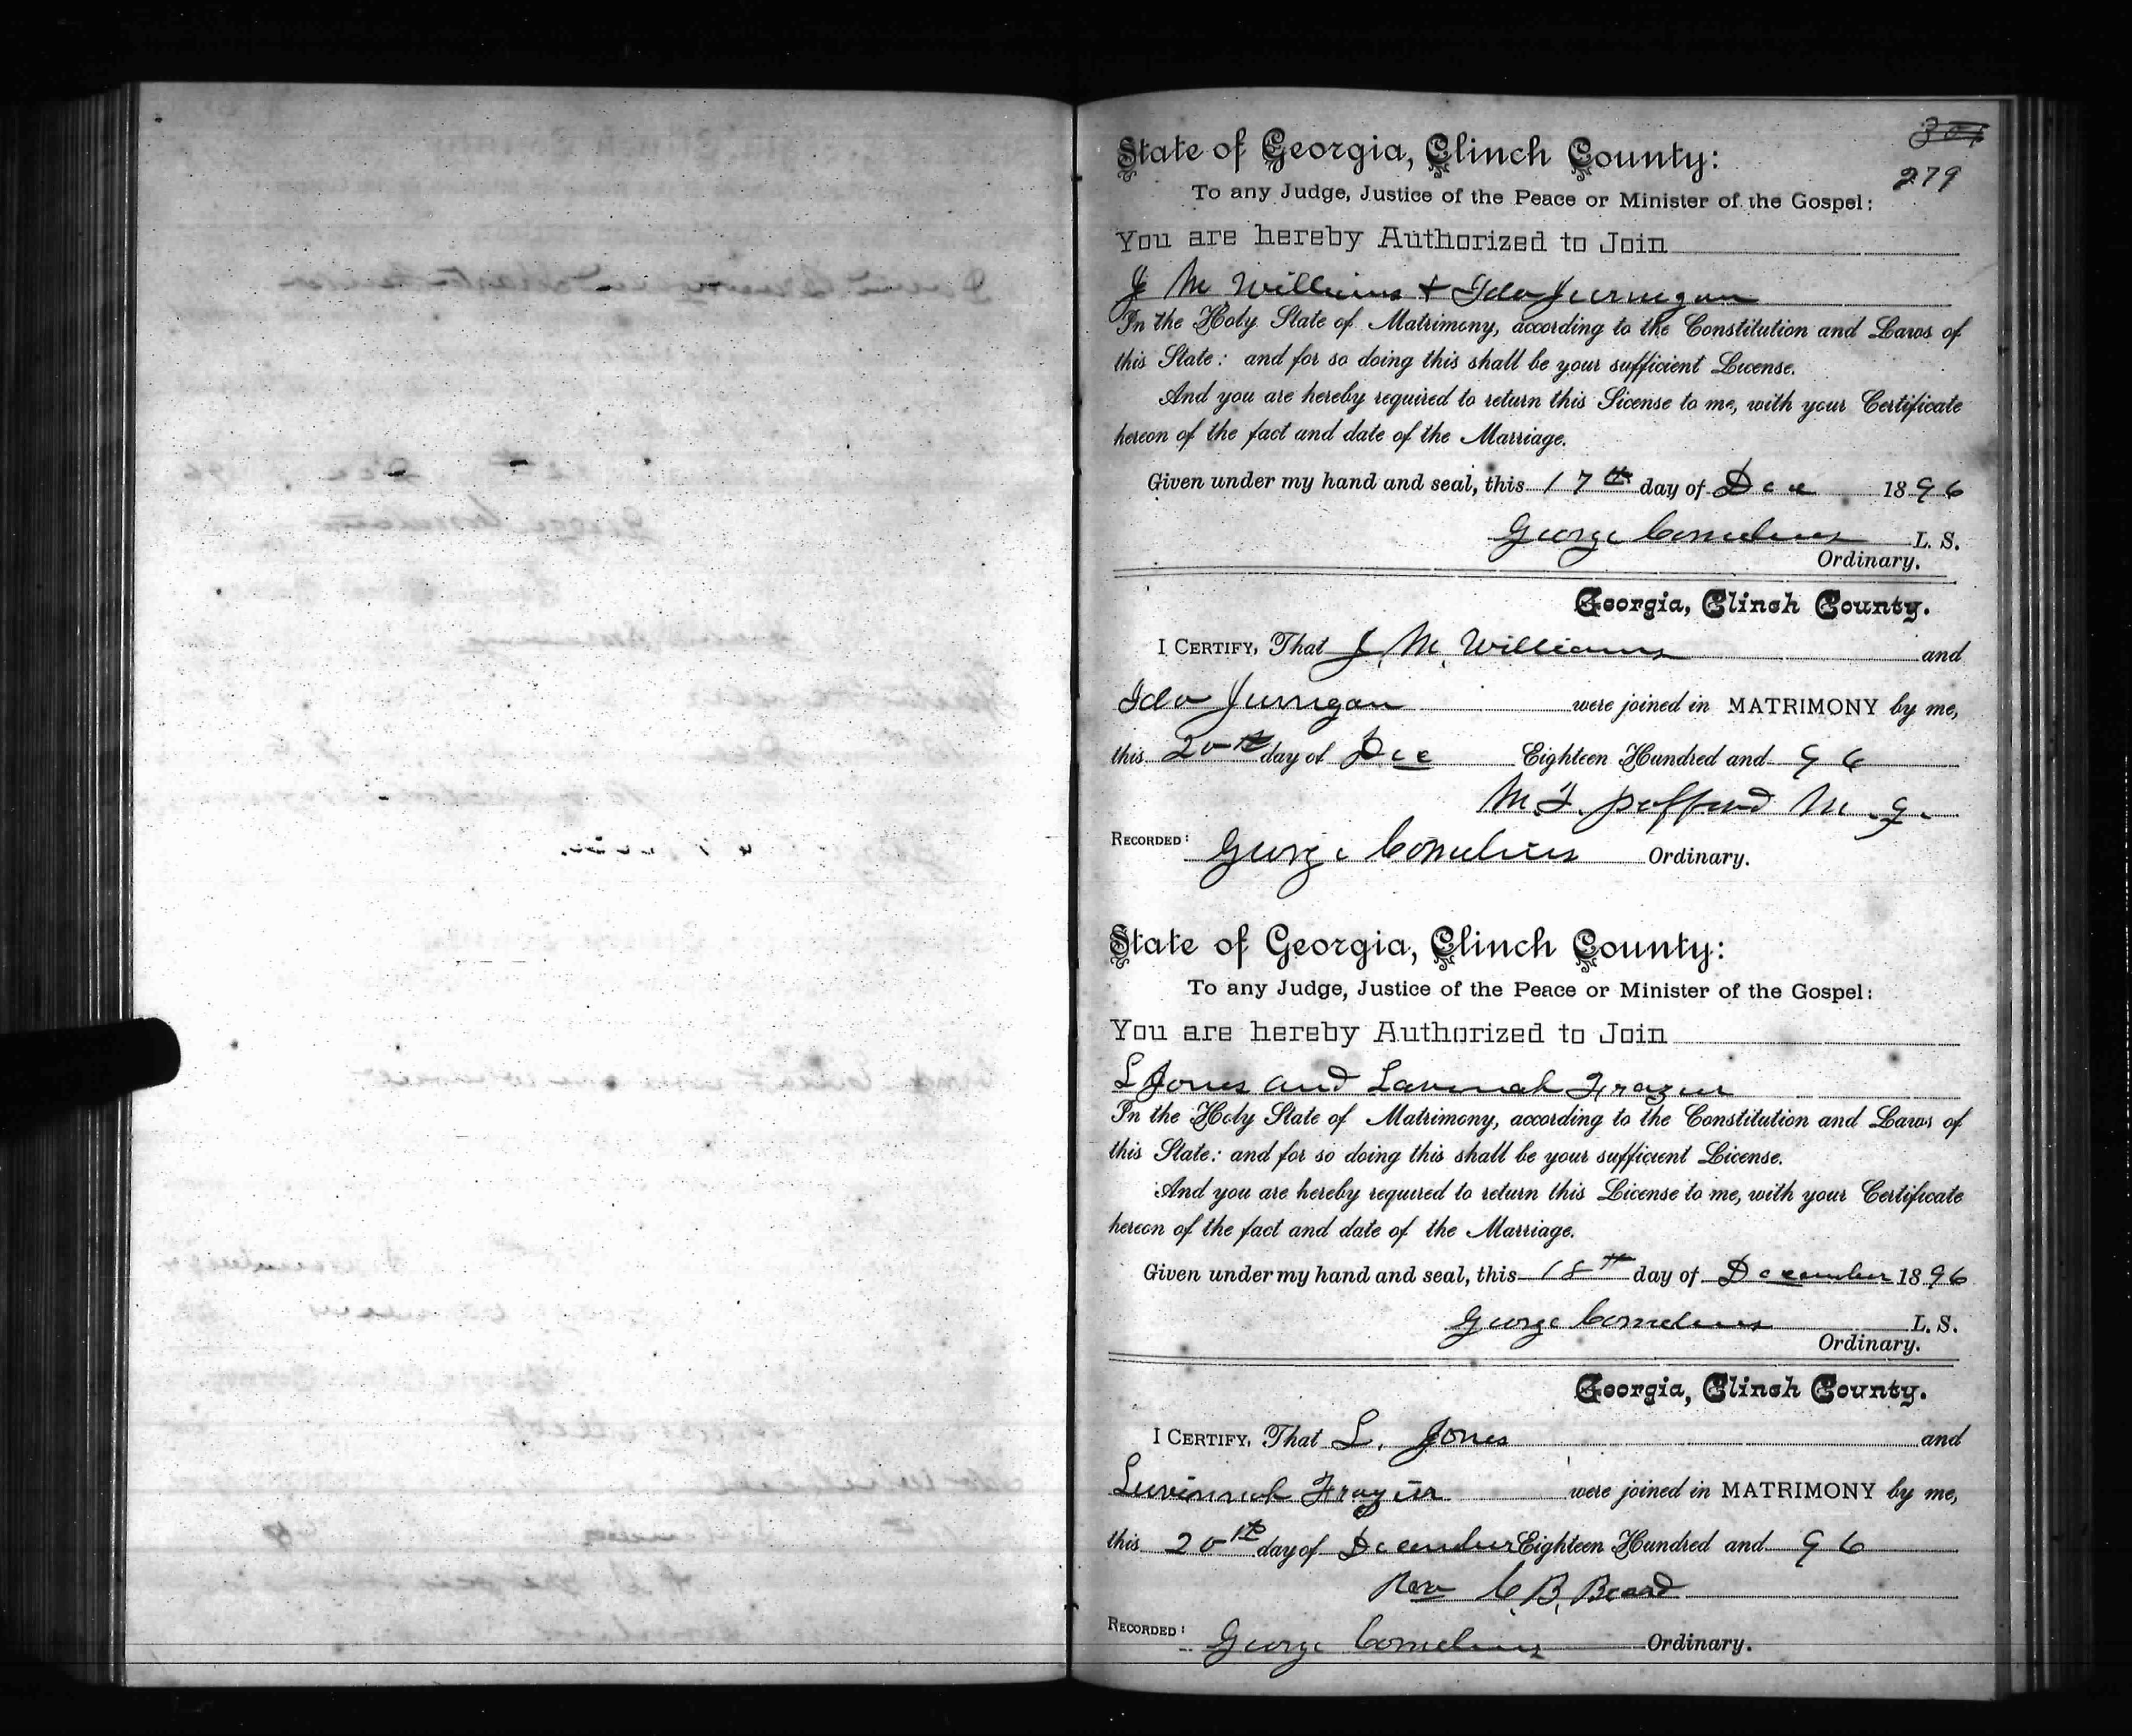 304
279
State of Georgia, Clinch County:
To any Judge, Justice of the Peace or Minister of the Gospel:
You are hereby Authorized to Join
J M Williams + Ida Jurnigan
In the Holy State of Matrimony, according to the Constitution and Laws of
this State: and for so doing this shall be your sufficient License.
And you are hereby required to return this License to me, with your Certificate
hereon of the fact and date of the Marriage.
Given under my hand and seal, this 17th day of Dec 1896
George Cornelius L. S.
Ordinary.
Georgia, Clinch County.
I CERTIFY, That J. M. Williams and
Ida Jurnigan were joined in MATRIMONY by me,
this 20th day of Dec Eighteen Hundred and 96
M. G.
RECORDED: George Cornelius Ordinary.
State of Georgia, Clinch County:
To any Judge, Justice of the Peace or Minister of the Gospel:
You are hereby Authorized to Join
L Jones and Lavinnah Frazier
In the Holy State of Matrimony, according to the Constitution and Laws of
this State: and for so doing this shall be your sufficient License.
And you are hereby required to return this License to me, with your Certificate
hereon of the fact and date of the Marriage.
Given under my hand and seal, this 18th day of December 1896
George Cornelius L. S.
Ordinary.
Georgia, Clinch County.
I CERTIFY, That L. Jones and
Luvinnah Frazier were joined in MATRIMONY by me,
this 20th day of December Eighteen Hundred and 96
Rev C. B. Beard
RECORDED: George Cornelius Ordinary.